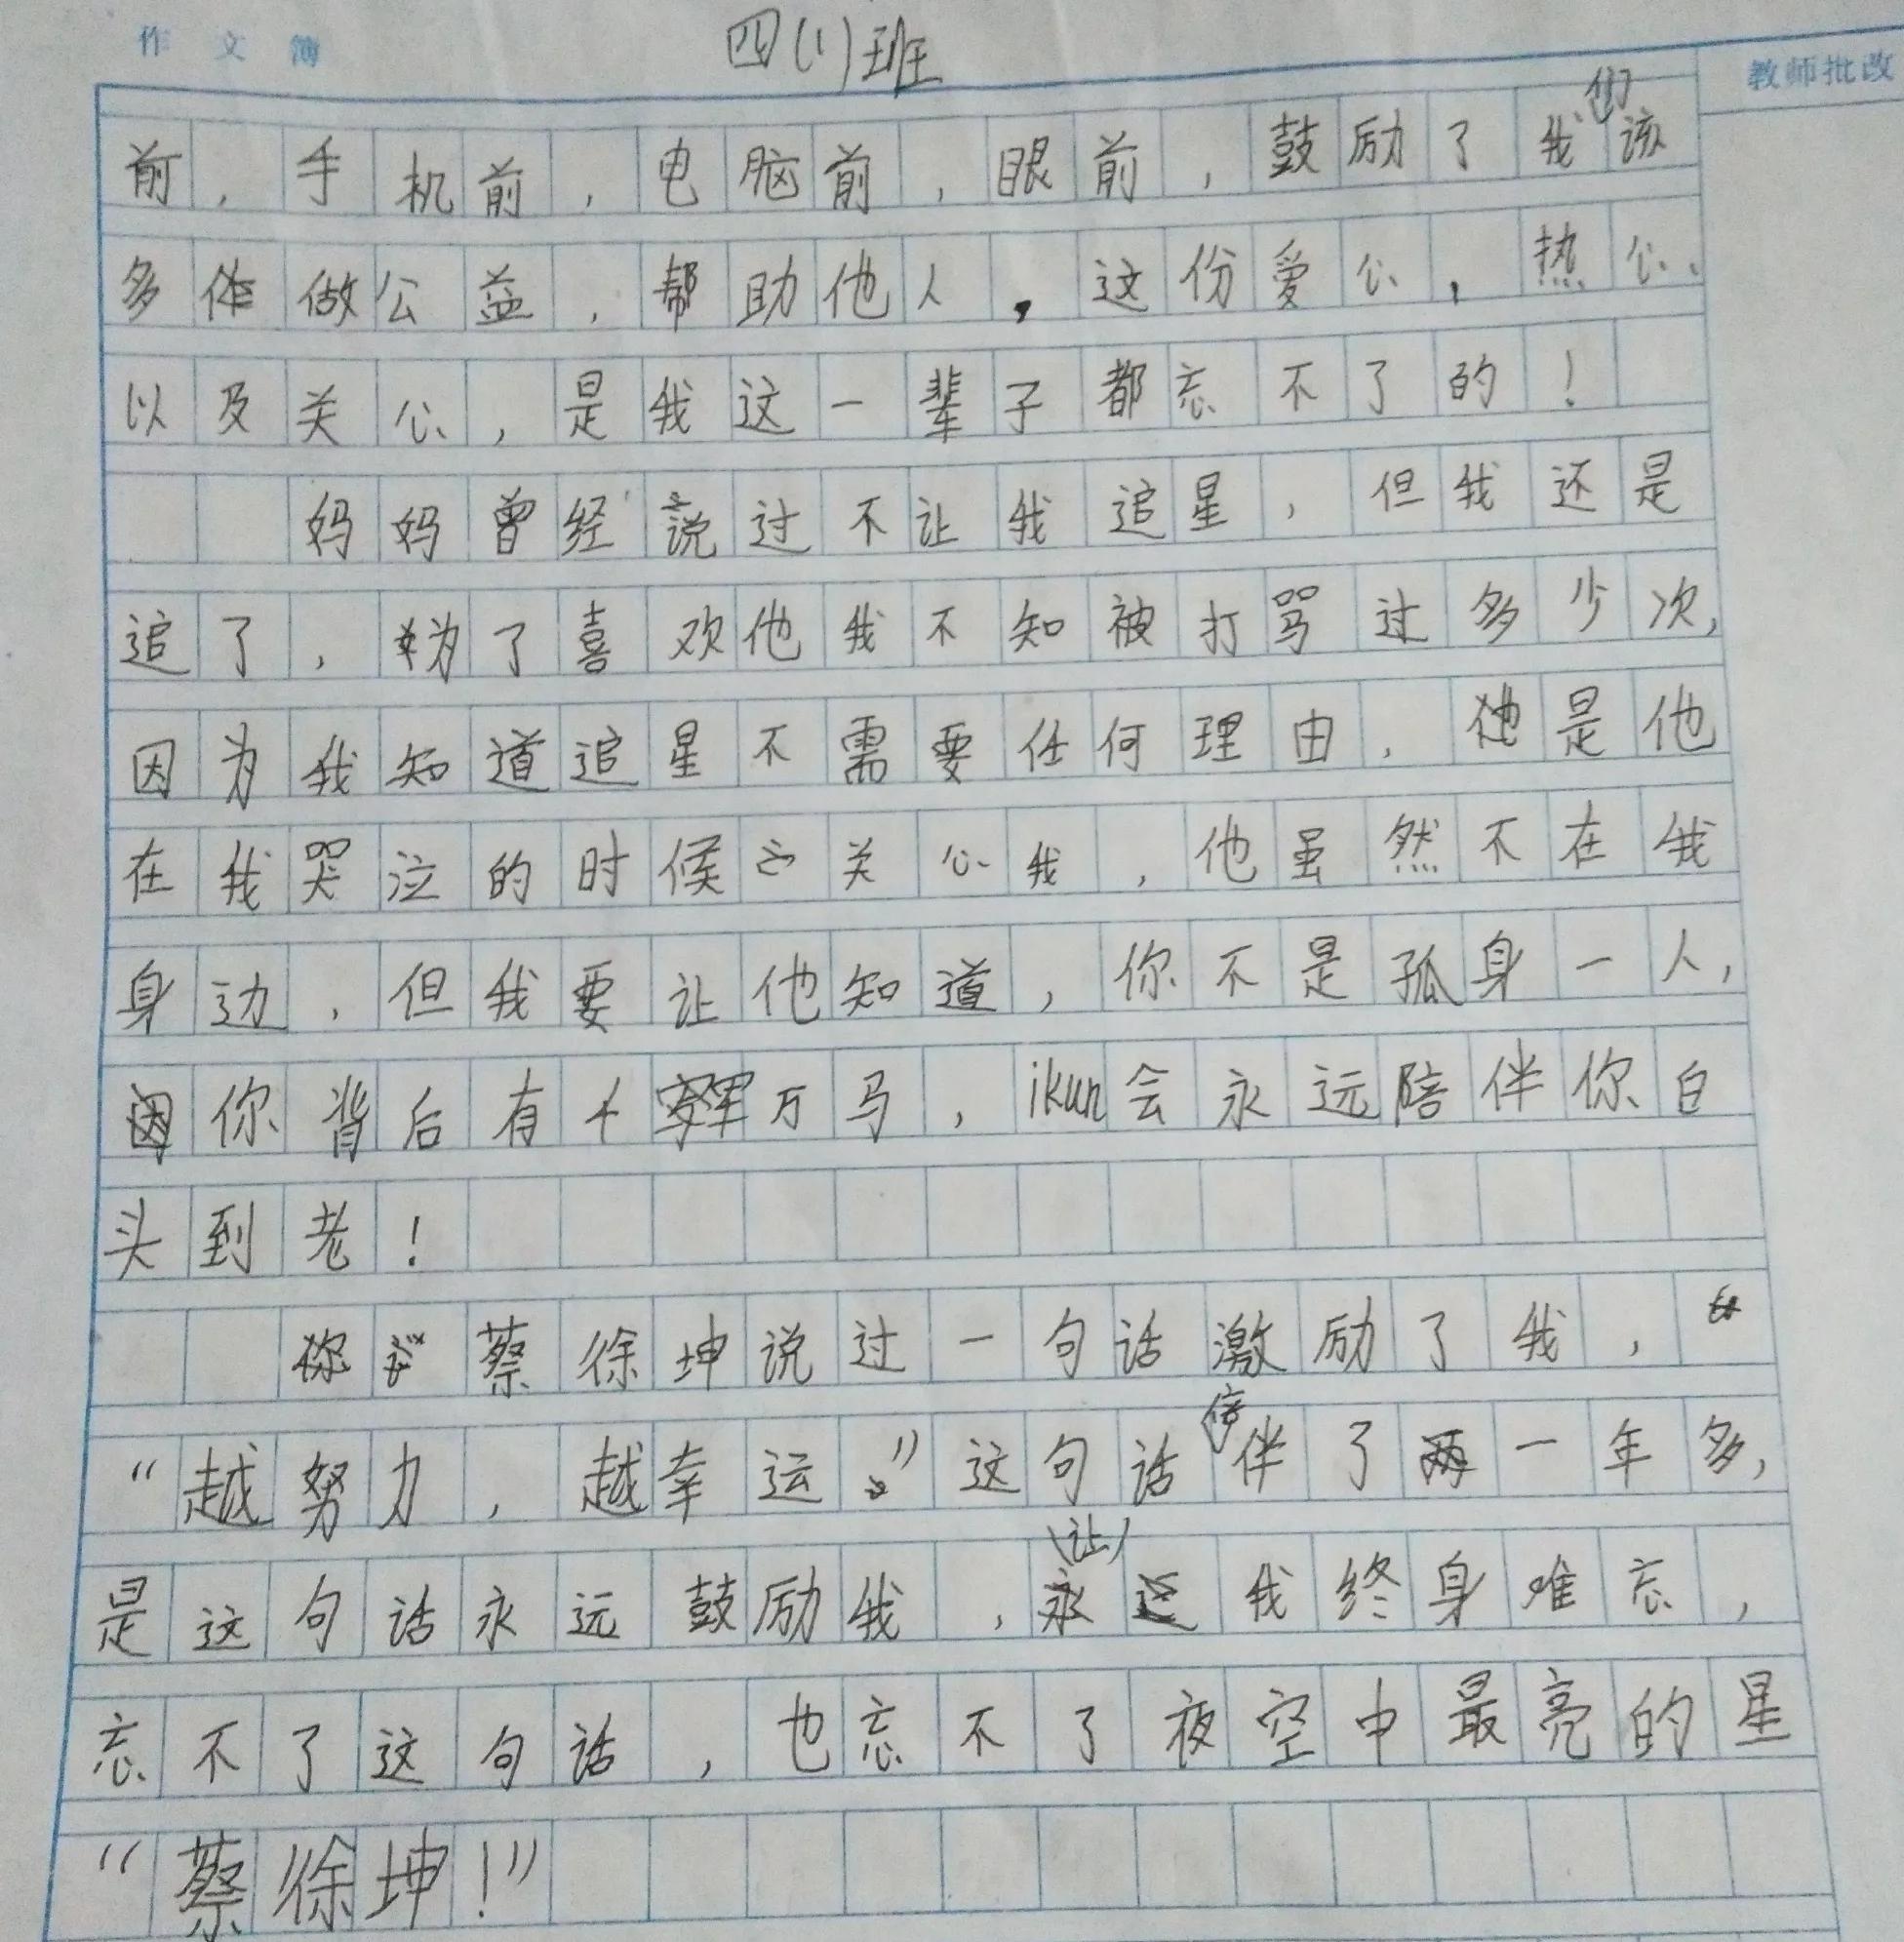 作文簿
四(1)班
教师批改
前，手机前，电脑前，眼前，鼓励了我们该
多做公益，帮助他人，这份爱心，热心、
以及关心，是我这一辈子都忘不了的！
妈妈曾经说过不让我追星，但我还是
追了，为了喜欢他我不知被打骂过多少次，
因为我知道追星不需要任何理由，是他
在我哭泣的时候关心我，他虽然不在我
身边，但我要让他知道，你不是孤身一人，
你背后有千军万马，ikun会永远陪伴你白
头到老！
蔡徐坤说过一句话激励了我，
“越努力，越幸运。”这句话陪伴了一年多，
是这句话永远鼓励我，让我终身难忘，
忘不了这句话，也忘不了夜空中最亮的星
“蔡徐坤！”